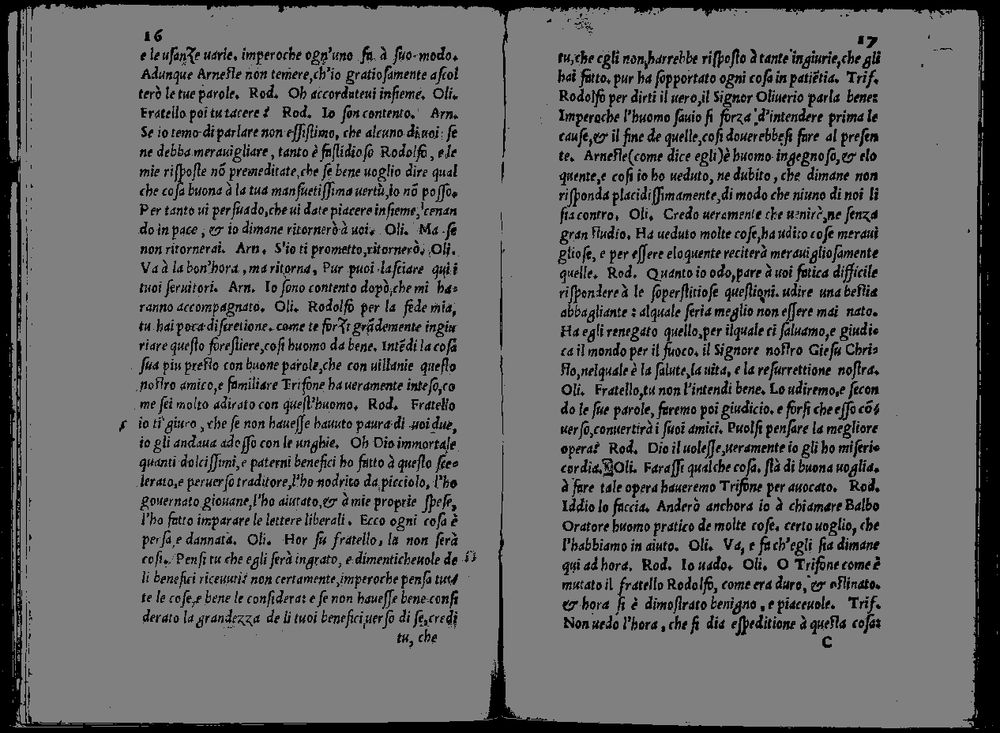 16
e le usanze uarie. imperoche ogn'uno fa à suo modo.
Adunque Arneste non temere, ch'io gratiosamente ascol
terò le tue parole. Rod. Oh accordateui insieme. Oli.
Fratello poi tu tacere? Rod. Io son contento. Arn.
Se io temo di parlare non essistimo, che alcuno di uoi se
ne debba merauigliare, tanto è fastidioso Rodolfo, e le
mie risposte nō premeditate, che se bene uoglio dire qual
che cosa buona à la tua mansuetissima uertù, io nō posso.
Per tanto ui persuado, che ui date piacere insieme, cenan
do in pace, & io dimane ritornerò à uoi. Oli. Ma se
non ritornerai. Arn. S'io ti prometto, ritornerò. Oli.
Va à la bon'hora, ma ritorna. Pur puoi lasciare qui i
tuoi seruitori. Arn. Io sono contento dopò, che mi ha-
ranno accompagnato. Oli. Rodolfo per la fede mia,
tu hai poca discretione. come te forzi grādemente ingiu
riare questo forestiere, cosi huomo da bene. Intēdi la cosa
sua piu presto con buone parole, che con uillanie questo
nostro amico, e familiare Trifone ha ueramente inteso, co
me sei molto adirato con quest'huomo. Rod. Fratello
io ti giuro, che se non hauesse hauuto paura di uoi due,
io gli andaua adosso con le unghie. Oh Dio immortale
quanti dolcissimi, e paterni benefici ho fatto à questo sce-
lerato, e peruerso traditore, l'ho nodrito da picciolo, l'ho
gouernato giouane, l'ho aiutato, & à mie proprie spese,
l'ho fatto imparare le lettere liberali. Ecco ogni cosa è
persa, e dannata. Oli. Hor su fratello, la non serà
cosi. Pensi tu che egli serà ingrato, e dimenticheuole de
li benefici riceuuti? non certamente, imperoche pensa tut
te le cose, e bene le considera: e se non hauesse bene consi
derato la grandezza de li tuoi benefici uerso di se, credi
tu, che
17
tu, che egli non harrebbe risposto à tante ingiurie, che gli
hai fatto. pur ha sopportato ogni cosa in patiētia. Trif.
Rodolfo per dirti il uero, il Signor Oliuerio parla bene:
Imperoche l'huomo sauio si forza d'intendere prima le
cause, & il fine de quelle, cosi douerebbesi fare al presen
te. Arneste (come dice egli) è huomo ingegnoso, & elo
quente, e cosi io ho ueduto, ne dubito, che dimane non
risponda placidissimamente, di modo che niuno di noi li
sia contro. Oli. Credo ueramente che uenirè, ne senza
gran studio. Ha ueduto molte cose, ha udito cose meraui
gliose, e per essere eloquente reciterà merauigliosamente
quelle. Rod. Quanto io odo, pare à uoi fatica difficile
rispondere à le soperstitiose questioni. udire una bestia
abbagliante: alquale seria meglio non essere mai nato.
Ha egli renegato quello, per ilquale ci saluamo, e giudi-
ca il mondo per il fuoco. il Signore nostro Giesu Chri-
sto, nelquale è la salute, la uita, e la resurrettione nostra.
Oli. Fratello, tu non l'intendi bene. Lo udiremo, e secon
do le sue parole, faremo poi giudicio. e forsi che esso cō-
uerso, conuertirà i suoi amici. Puolsi pensare la megliore
opera? Rod. Dio il uolesse, ueramente io gli ho miseri-
cordia. Oli. Farassi qualche cosa. stà di buona uoglia.
à fare tale opera haueremo Trifone per auocato. Rod.
Iddio lo faccia. Anderò anchora io à chiamare Balbo
Oratore huomo pratico de molte cose. certo uoglio, che
l'habbiamo in aiuto. Oli. Va, e fa ch'egli sia dimane
qui ad hora. Rod. Io uado. Oli. O Trifone come è
mutato il fratello Rodolfo, come era duro, & ostinato.
& hora si è dimostrato benigno, e piaceuole. Trif.
Non uedo l'hora, che si dia espeditione à questa cosa:
C